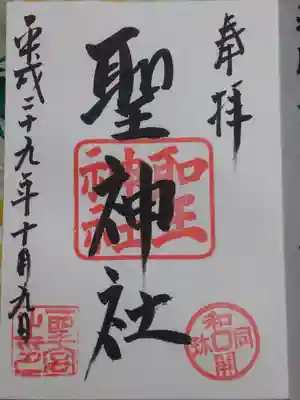 奉拝
聖神社
聖神社
平成二十九年十月九日
和同開珎